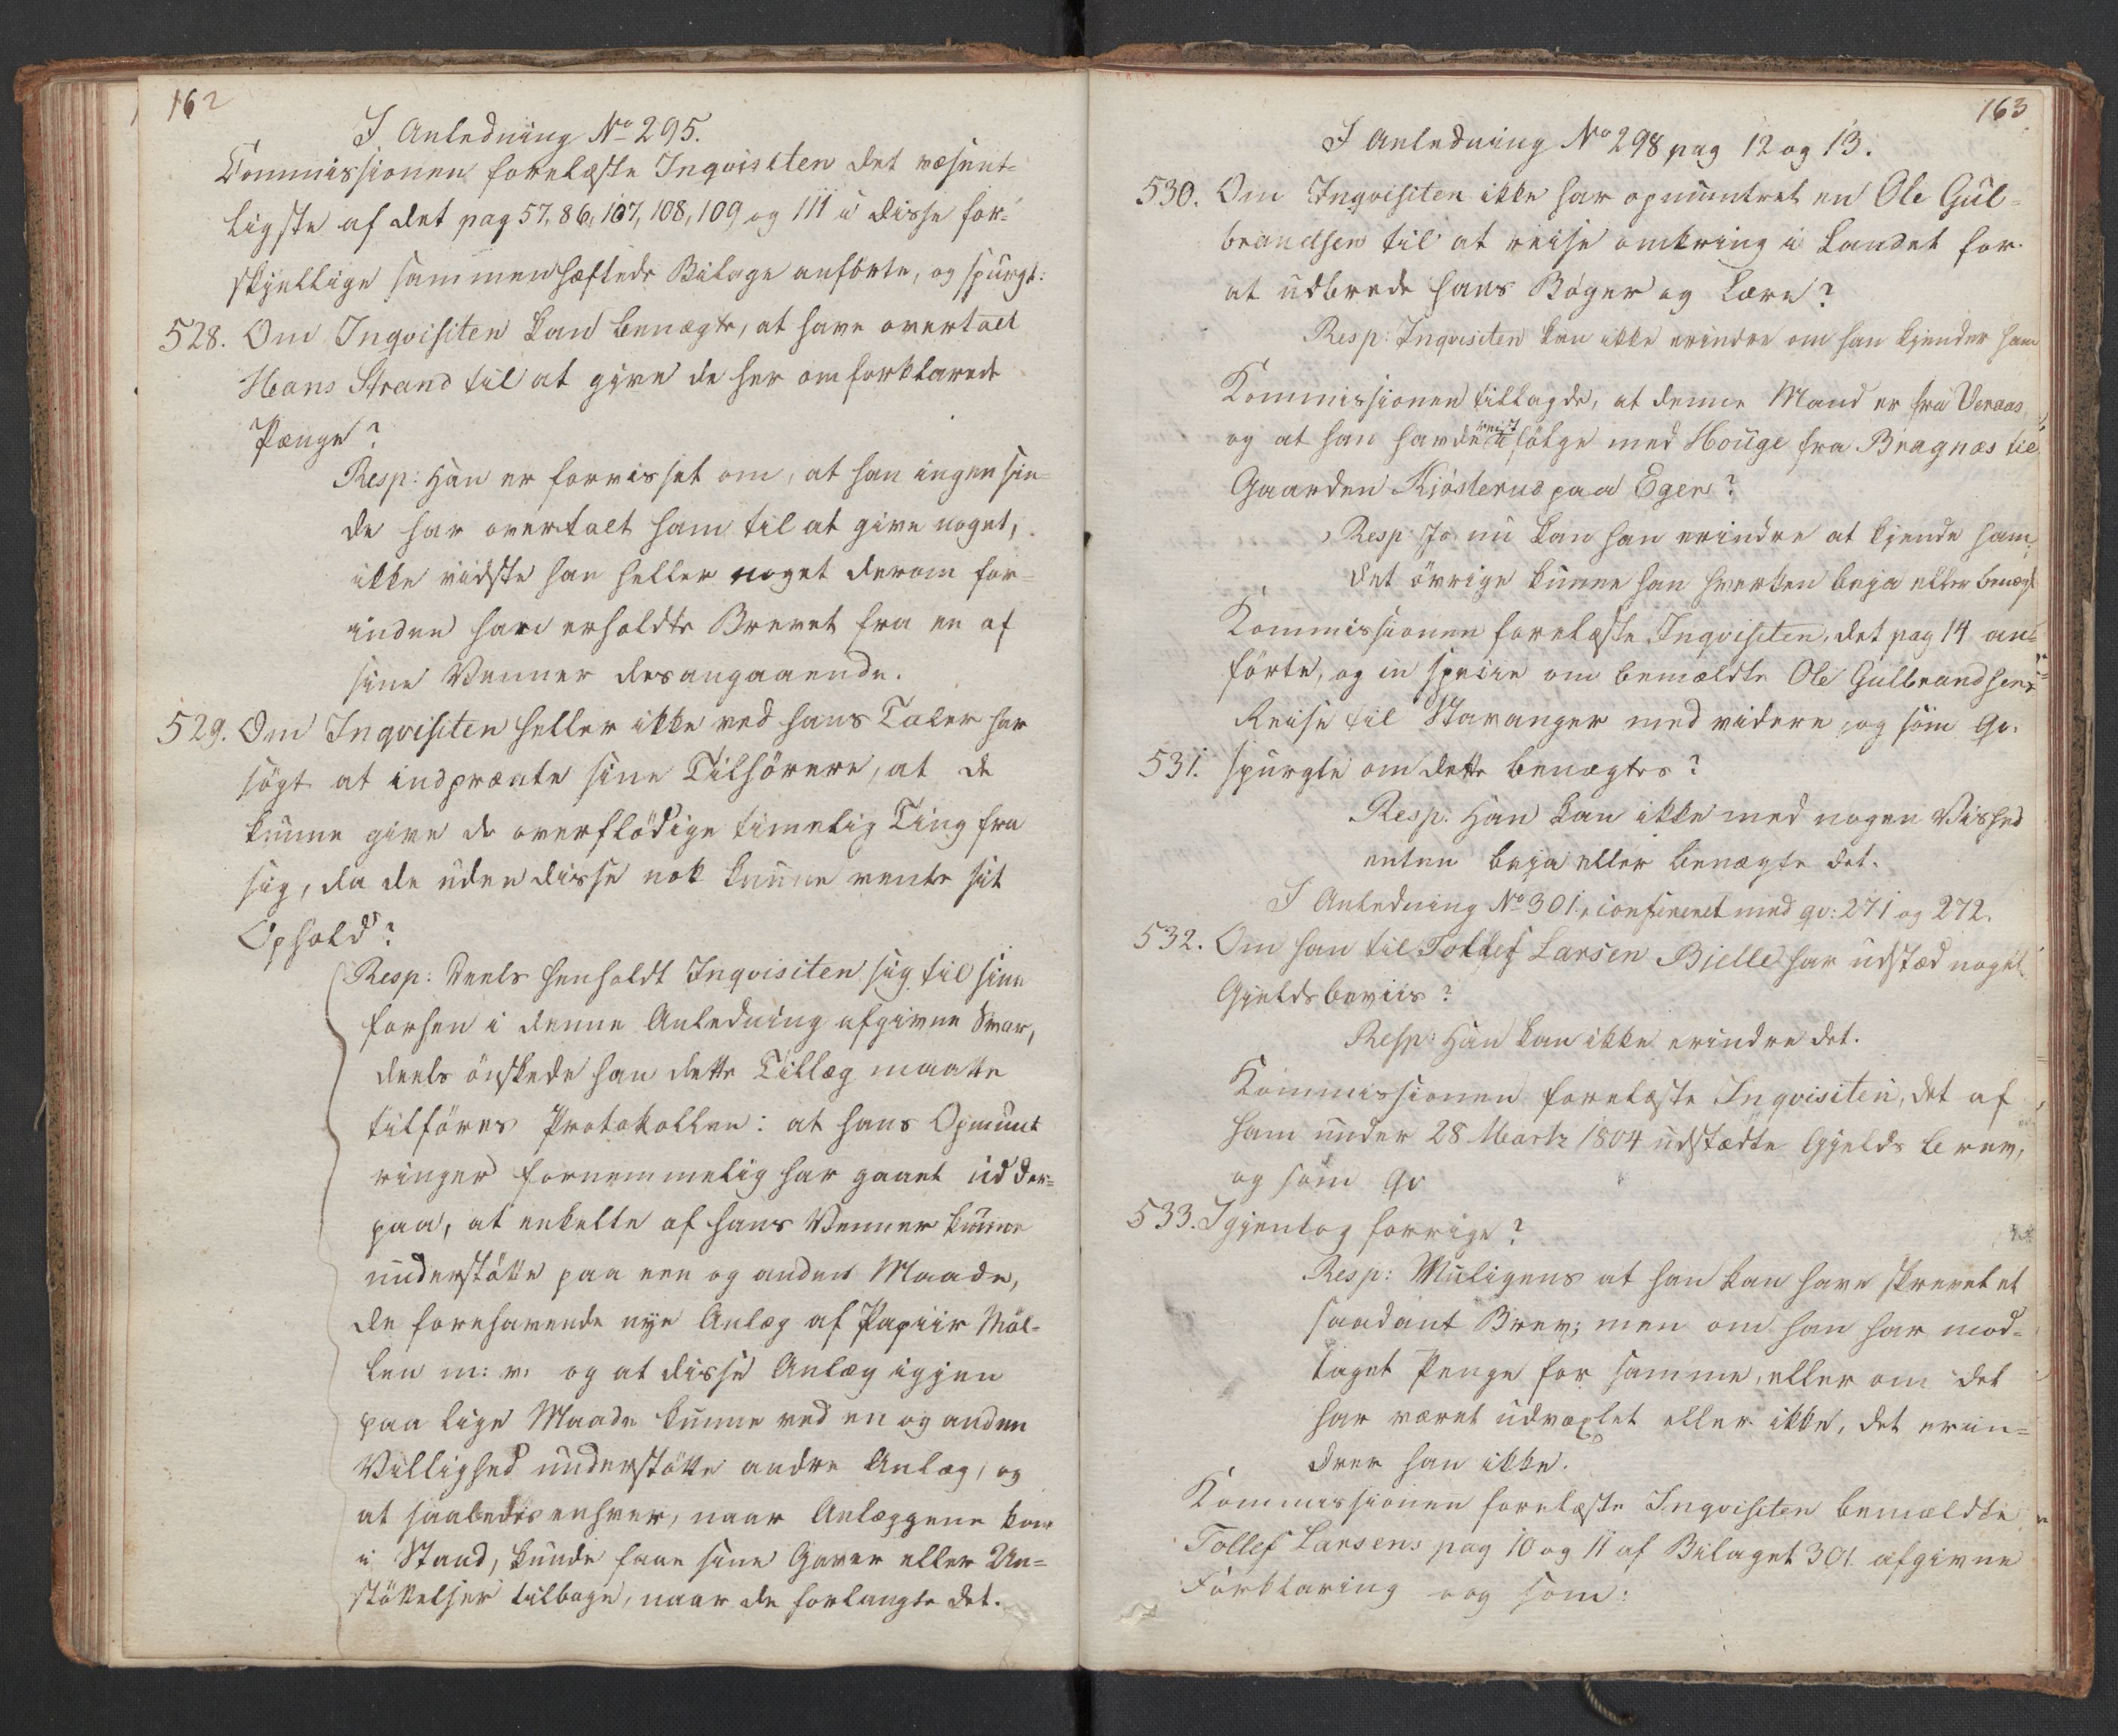 162
I Anledning No 295.
Commissionen forelæste Inqvisiten det væsent-
ligste af det pag 57, 86, 107, 108, 109 og 111 i disse for-
skjellige sammenhæftede Bilage anförte, og spurgt:
528. Om Inqvisiten kan benægte, at have overtalt
Hans Strand til at give de her omforklarede
Penge?
Resp: Han er forvisset om, at han ingensin-
de har overtalt ham til at give noget,
ikke vidste han heller noget derom for-
inden han erholdte Brevet fra en af
sine Venner desangaaende.
529. Om Inqvisiten heller ikke ved hans Taler har
sögt at indprænte sine Tilhörere, at de
kunne give de overflödige timelig Ting fra
sig, da de uden disse nok kunne vente sit
Ophold?
Resp: Deels henholdt Inqvisiten sig til sine
forhen i denne Anledning afgivne Svar,
deels önskede han dette Tillæg maatte
tilföres Protokollen: at hans Opmunt
ringer fornemmelig har gaaet ud der-
paa, at enkelte af hans Venner kunne
understötte paa een og anden Maade,
de forehavende nye Anlæg af Papiir Möl-
len m: v: og at disse Anlæg igjen
paa lige Maade kunne ved en og anden
Villighed understötte andre Anlæg, og
at saaledes enhver, naar Anlæggene kom
i Stand, kunde faae sine Gaver eller Un-
stöttelser tilbage, naar de forlangte det.
163
I Anledning No 298 pag 12 og 13.
530. Om Inqvisiten ikke har opmuntret en Ole Gul-
brandsen til at reise omkring i Landet for
at udbrede hans Böger og Lære?
Resp: Inqvisiten kan ikke erindre om han kjender ham
Kommissionen tillagde, at denne Mand er fra
og at han havde reist i fölge med Houge fra Bragnæs til
Gaarden Kiösterud paa Eger?
Resp: Jo nu kan han erindre at kjende ham
det övrige kunne han hverken beja eller benægt
Kommissionen forelæste Inqvisiten, det pag 14 an-
förte, og in specie om bemældte Ole Gulbrandsens
Reise til Stavanger med videre, og som Qv.
531. spurgte om dette benægtes?
Resp: Han kan ikke med nogen Vished
enten beja eller benægte det.
I Anledning No 301, confereret med qv: 271 og 272.
532. Om han til Tollef Larsen Bjelle har udstæd noget
Gjeldsbeviis?
Resp: Han kan ikke erindre det.
Kommissionen forelæste Inqvisiten, det af
ham under 28 Martz 1804 udstædte Gjelds brev,
og som Qv
533. Igjentog forrige?
Resp: Muligens at han kan have skrevet et
saadant Brev; men om han har mod-
taget Penge for samme, eller om det
har været udvexlet eller ikke, det erin-
drer han ikke.
Kommissionen forelæste Inqvisiten bemældte
Tollef Larsens pag 10 og 11 af Bilaget 301 afgivne
Forklaring og som: